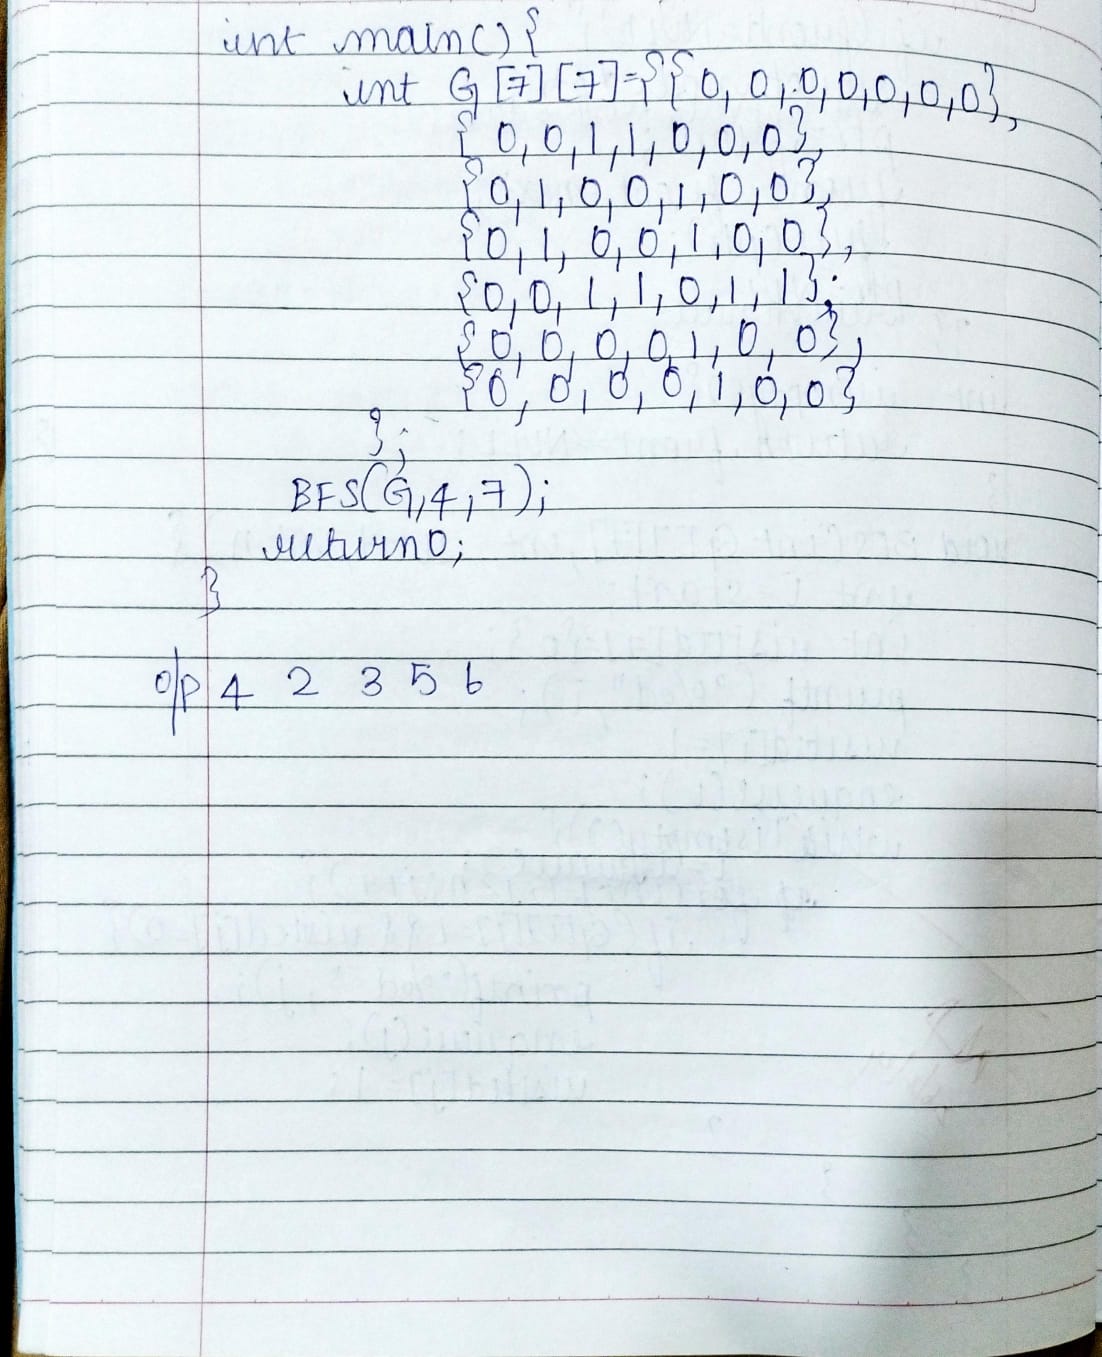 int main() {
int G[7][7]={{0,0,0,0,0,0,0},
{0,0,1,1,0,0,0},
{0,1,0,0,1,0,0},
{0,1,0,0,1,0,0},
{0,0,1,1,0,1,1};
{0,0,0,0,1,0,0},
{0,0,0,0,1,0,0}
};
BFS(G,4,7);
return0;
}
o/p 4 2 3 5 6